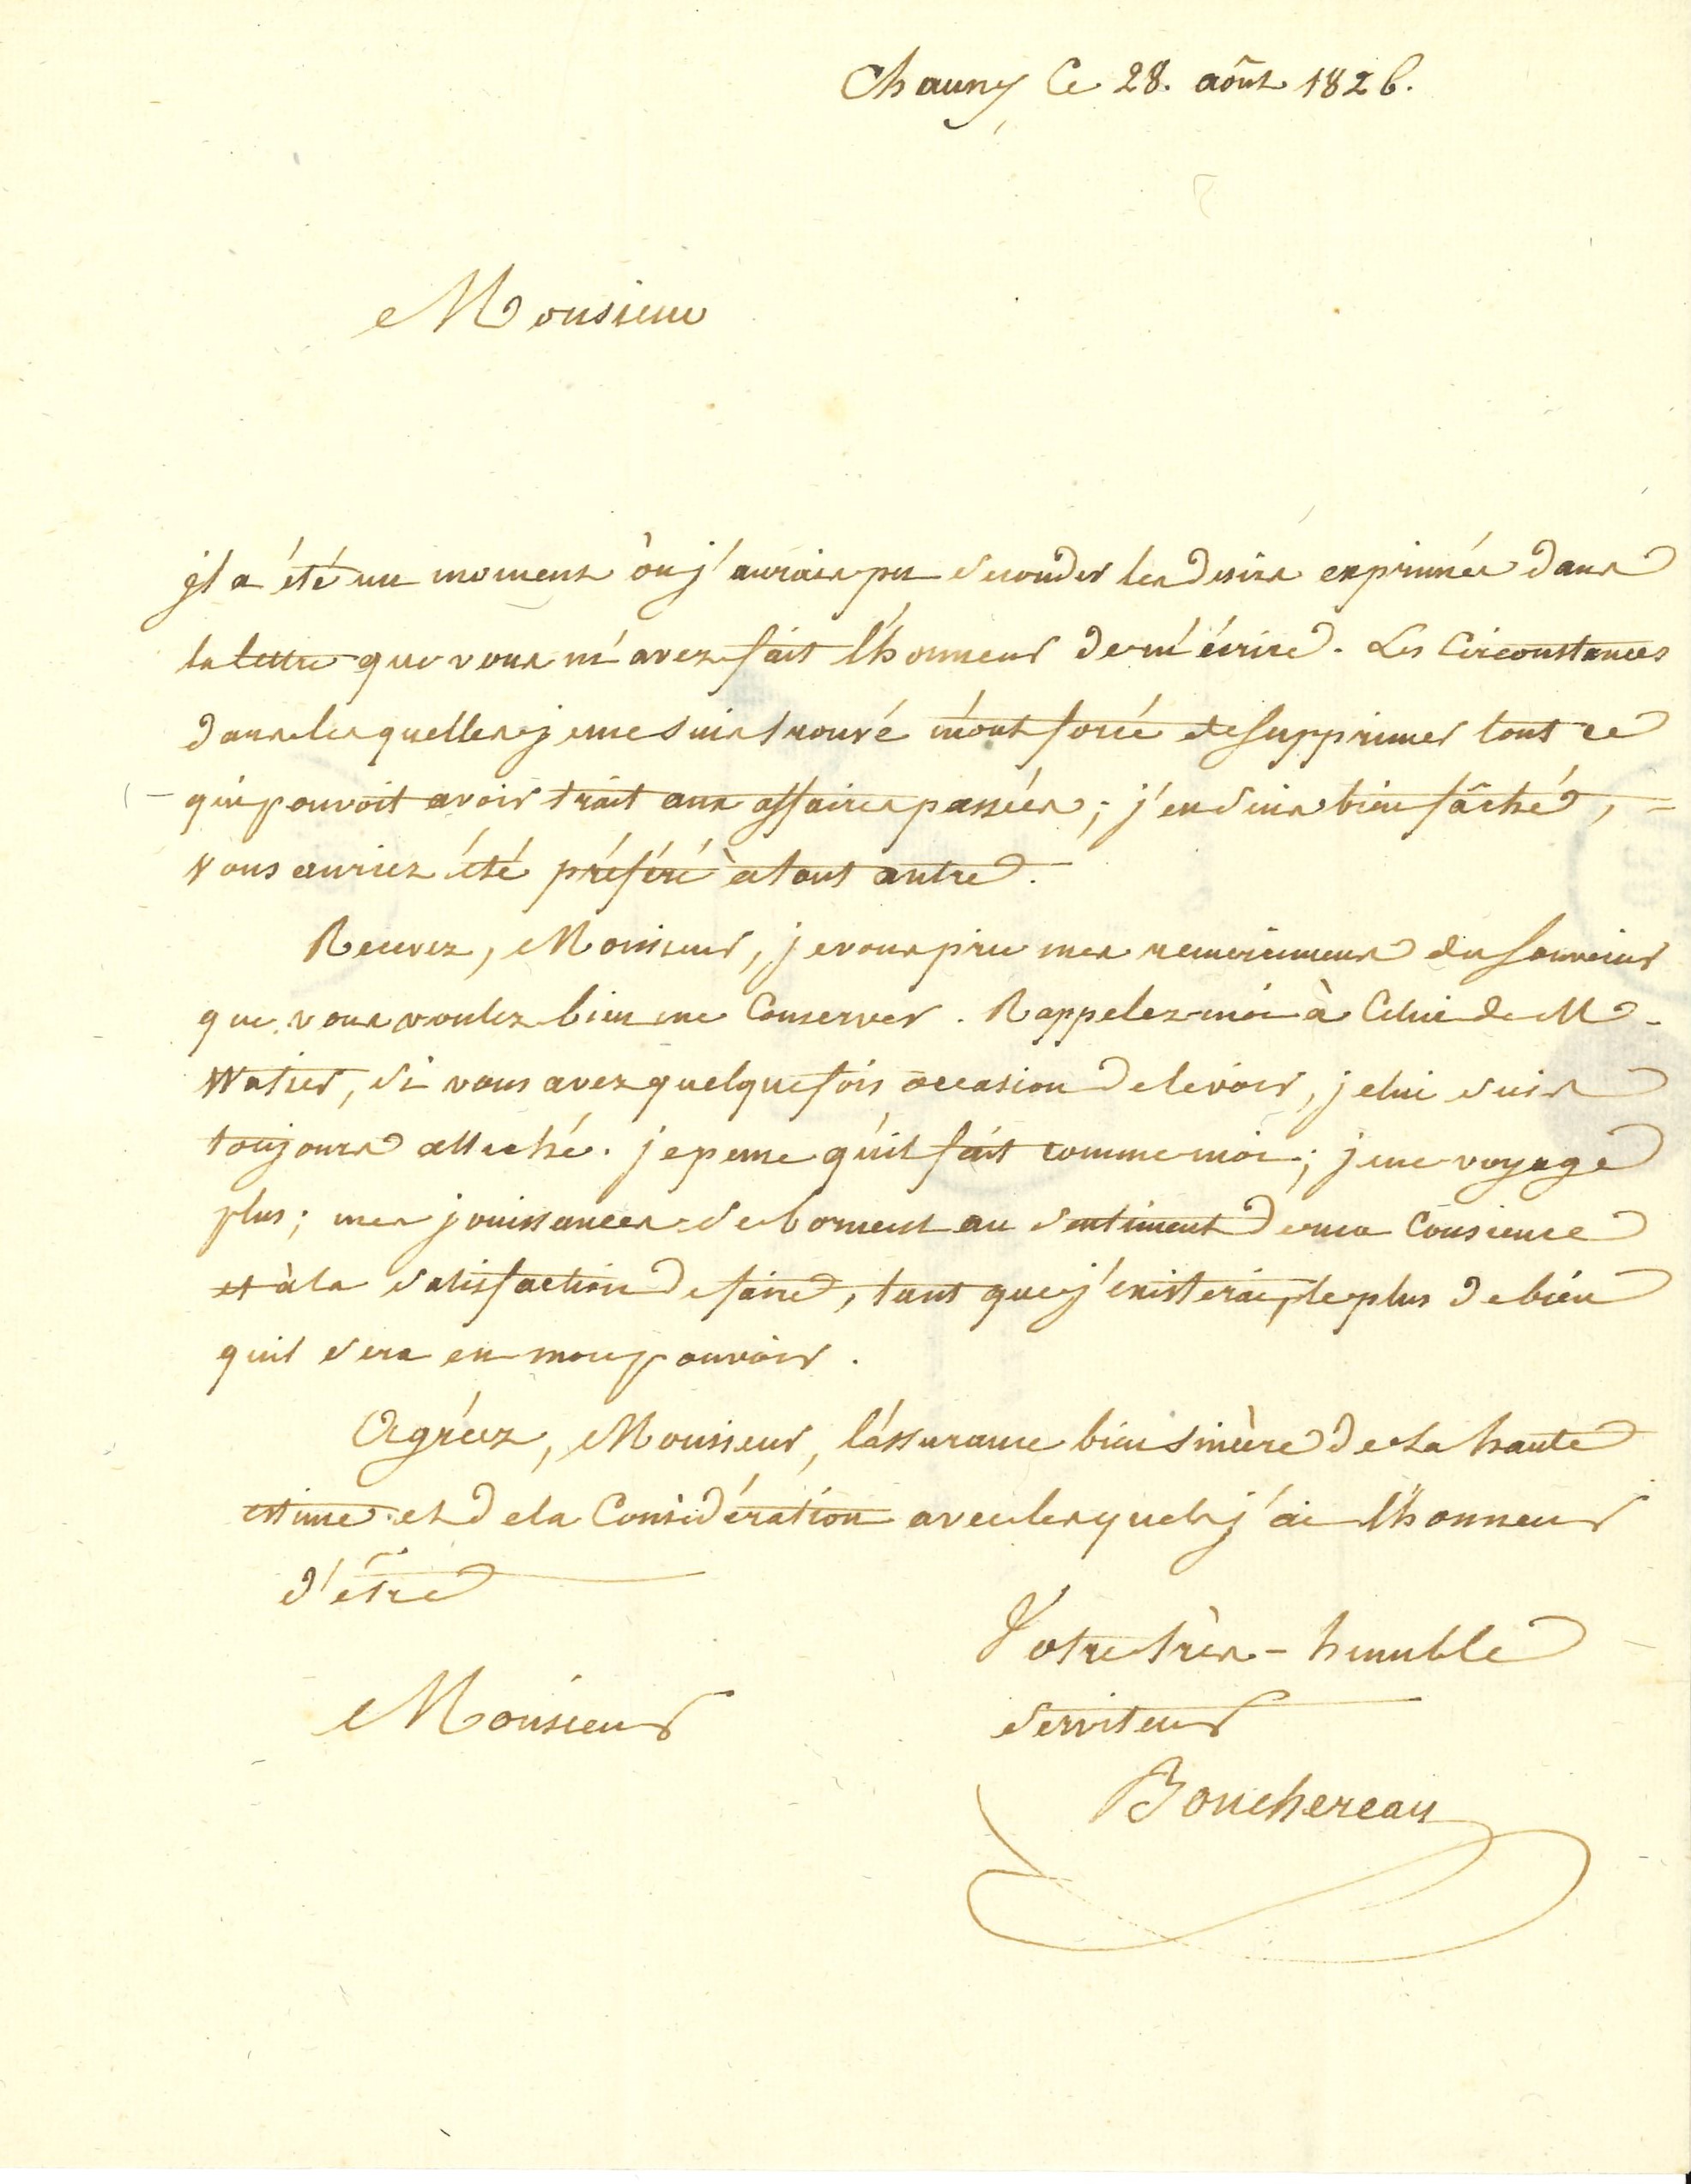 Chauny Ce 28. août 1826.
Monsieur
jl a été un moment où j'aurais pu seconder les desirs exprimés dans
la lettre que vous m'avez fait l'honneur de m'écrire. Les Circonstances
dans lesquelles je me suis trouvé m'ont forcé de supprimer tout ce
qui pouvoit avoir trait aux affaires passées; j'en suis bien fâché,
vous auriez été préféré à tout autre.
Recevez, Monsieur, je vous prie mes remerciemens du souvenir
que vous voulez bien me Conserver. Rappelez-moi à Celui de M.
Watier, si vous avez quelquefois occasion de le voir, je lui suis
toujours attaché. je pense qu'il fait comme moi; je ne voyage
plus; mes jouissances se bornent au sentiment de ma Consience
et à la satisfaction de faire, tant que j'existerai, le plus de bien
qu'il sera en mon pouvoir.
Agréez, Monsieur, l'assurance bien sincère de la haute
estime et de la Considération avec lesquels j'ai l'honneur
d'être
Votre très-humble
Monsieur
serviteur
Bouchereau